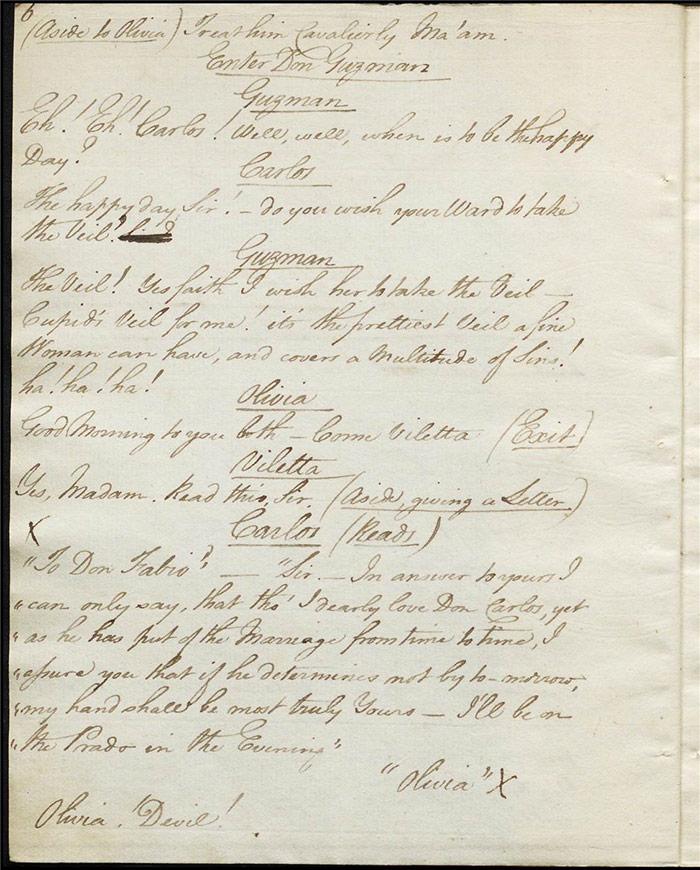 6
(Aside to Olivia) Treat him Cavalierly Ma'am.
Enter Don Guzman
Guzman
Eh! Eh! Carlos! Well, well, when is to be the happy
Day?
Carlos
The happy day, Sir! - do you wish your Ward to take
the Veil?
Guzman
The Veil! Yes faith I wish her to take the Veil —
Cupid's Veil for me! it's the prettiest Veil a fine
Woman can have, and covers a Multitude of Sins!
ha! ha! ha!
Olivia
Good Morning to you both — Come Viletta (Exit)
Viletta
Yes, Madam. Read this, Sir. (Aside, giving a Letter)
Carlos (Reads)
X
"To Don Fabio" — "Sir. — In answer to yours I
"can only say, that tho' I dearly love Don Carlos, yet
"as he has put of the Marriage from time to time, I
"assure you that if he determines not by to-morrow,
"my hand shall be most truly Yours — I'll be on
"the Prado in the Evening"
"Olivia" X
Olivia! Devil!